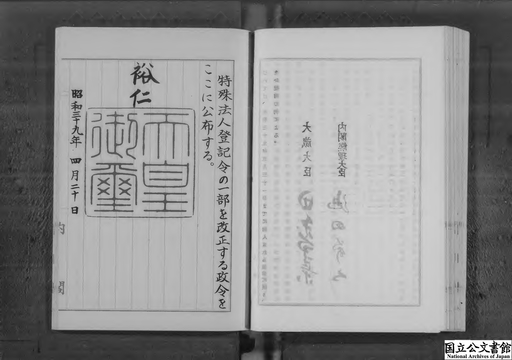 特殊法人登記令の一部を改正する政令を
ここに公布する。
裕仁
天皇
御璽
昭和三十九年 四月二十日
内閣
内閣総理大臣
大蔵大臣
国立公文書館
National Archives of Japan